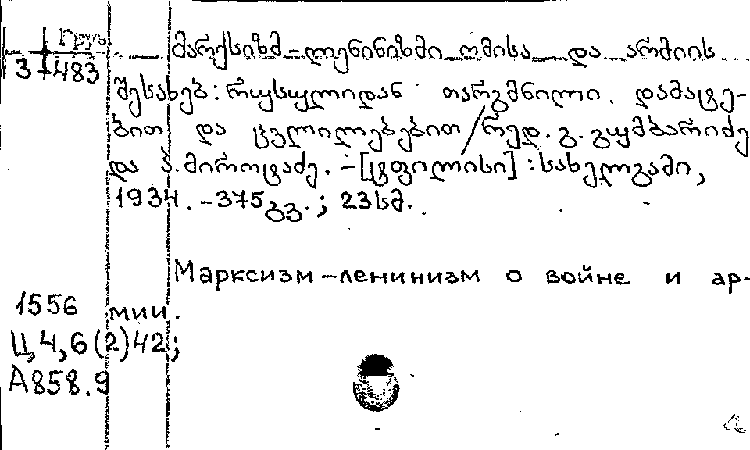 Груз
3-483
მარქსიზმ-ლენინიზმი ომისა და არმიის
შესახებ: რუსულიდან თარგმნილი. დამატე-
ბით და ცვლილებებით / რედ. გ. გუმბარიძე
და ბ. მიროტაძე. - [ტფილისი] : სახელგამი,
1934. - 375 გვ. ; 23 სმ.
Марксизм-ленинизм о войне и ар-
мии.
1556
Ц,4,6(2)42;
А858.9